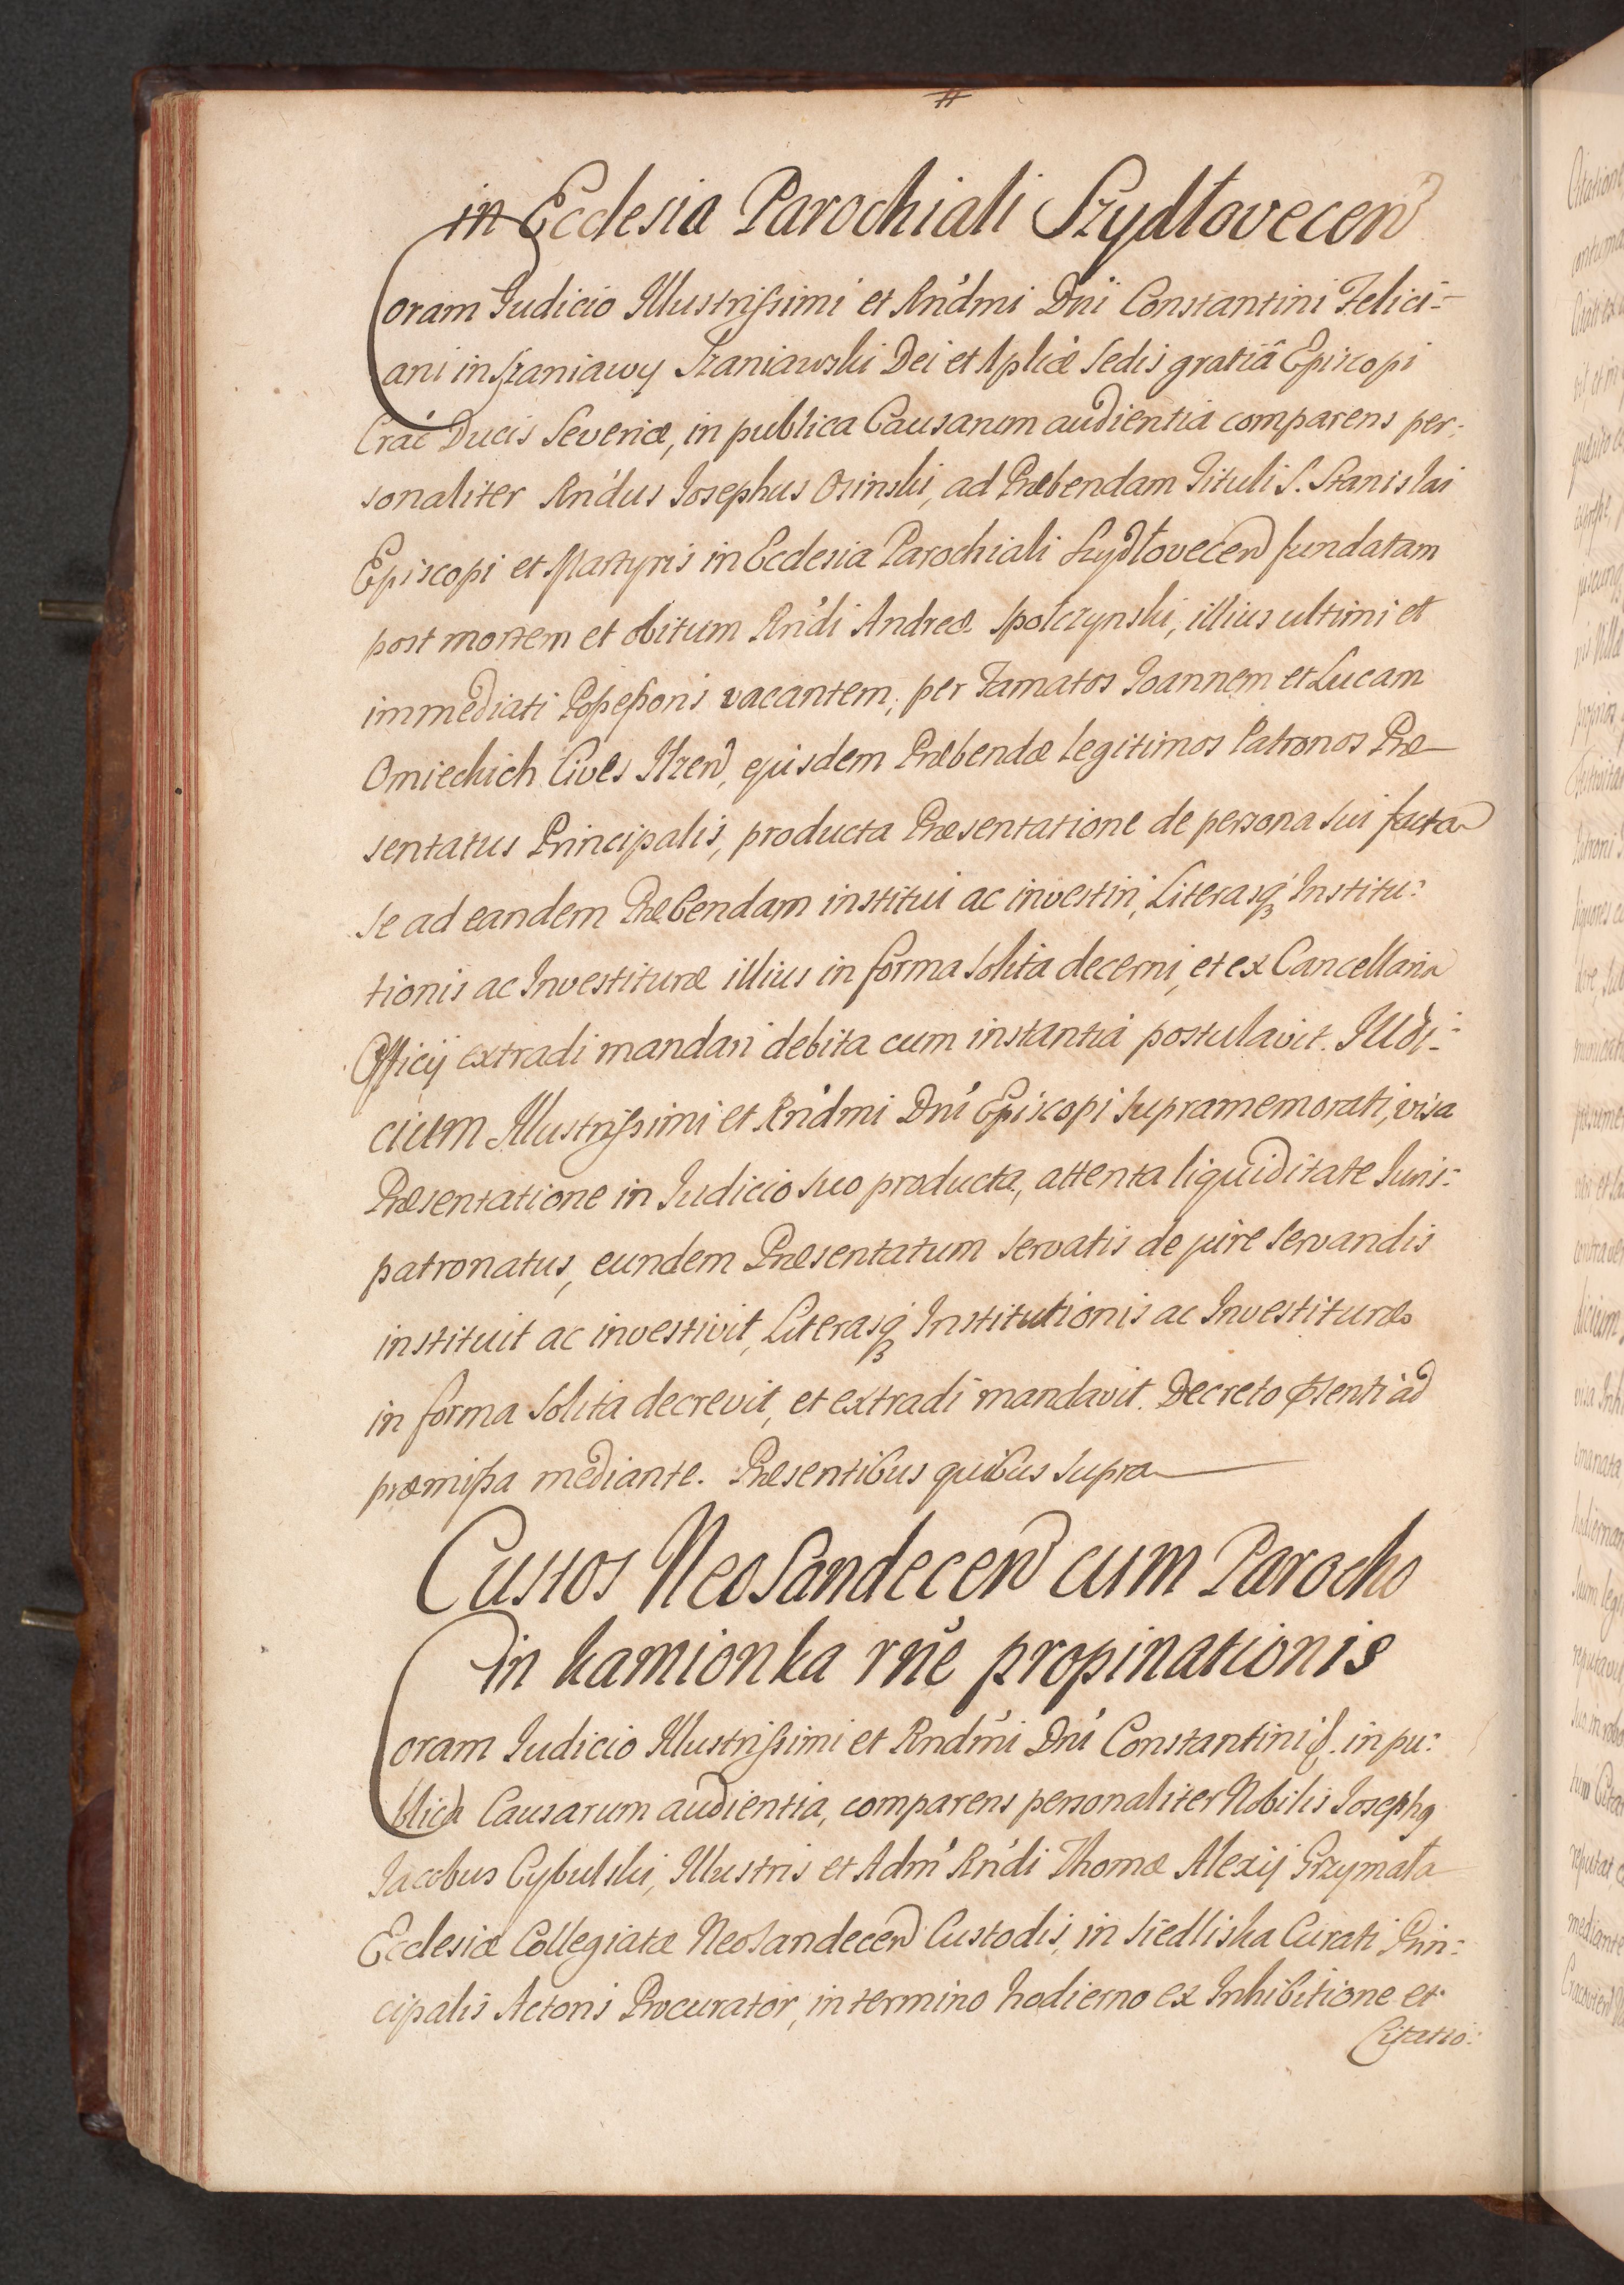 in Ecclesia Parochiali Szydłovecen
Coram Iudicio Illustrissimi et Rńdmi Dńi Constantini Felici-
ani in Szaniawy Szaniawski Dei et Aplicæ Sedis gratiâ Episcopi
Crać Ducis Severiæ, in publica Causarum audientia comparens per:
sonaliter Rńdus Iosephus Osinski, ad Præbendam Tituli S. Stanislai
Episcopi et Martyris in Ecclesia Parochiali Szydłovecen fundatam
post mortem et obitum Rńdi Andreæ Społczynski, illius ultimi et
immediati Possessoris vacantem, per Famatos Ioannem et Lucam
Omiechich Cives Ilzen, ejusdem Præbendæ legitimos Patronos Præ-
sentatus Principalis, producta Præsentatione de persona sui facta
se ad eandem Præbendam institui ac investiri, Literasq Institu:
tionis ac Investituræ illius in forma solita decerni, et ex Cancellaria
Officij extradi mandari debita cum instantia postulavit. IUdi:
cium Illustrissimi et Rńdmi Dńi Episcopi supramemorati, visa
Præsentatione in Iudicio suo producta, attenta liquiditate Iuris:
patronatus, eundem Præsentatum servatis de jure servandis
instituit ac investivit, Literasq Institutionis ac Investituræ
in forma solita decrevit, et extradi mandavit. Decreto pſenti ad
præmissa mediante. Præsentibus quibus supra
Custos NeoSandecen cum Parocho
in Kamionka rńe propinationis
Coram Iudicio Illustrissimi et Rndḿi Dńi Constantini &. in pu:
blica Causarum audientia, comparens personaliter Nobilis Iosephq
Iacobus Cybulski, Illustris et Adm Rńdi Thomæ Alexij Grzymała
Ecclesiæ Collegiatæ NeoSandecen Custodis, in Siedliska Curati Prin:
cipalis Actoris Procurator, in termino hodierno ex Inhibitione et
Citatio: